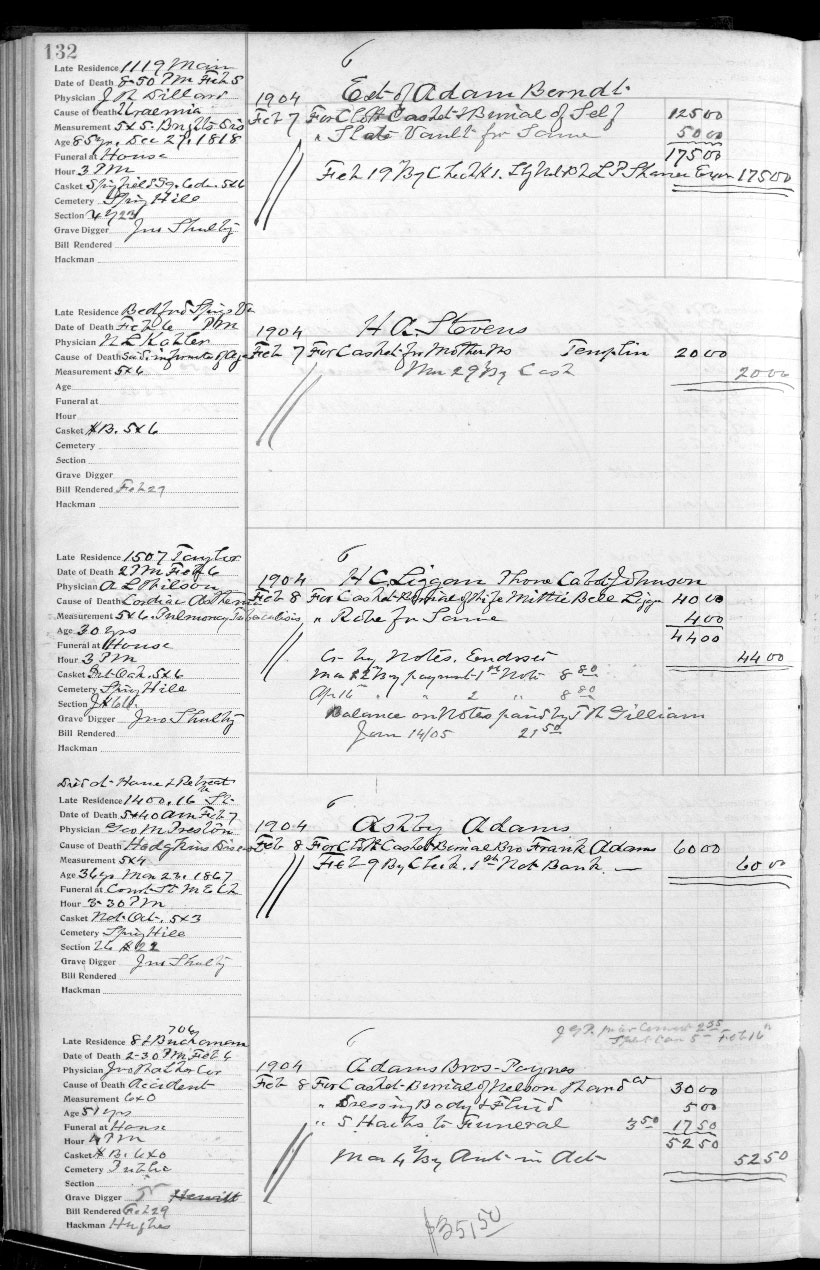 132
Late Residence 1119 Main
Date of Death 8-50 PM Feb 5
Physician J R Dillard
Cause of Death Uraemia
Measurement 5x5
Age 85 yrs. Dec 27, 1818
Funeral at House
Hour 3 PM
Casket
Cemetery Spring Hill
Section
Grave Digger Jno Shultz
Bill Rendered
Hackman
6
1904 Est of Adam Berndt
Feb 7 For Cloth Casket & Burial of Self 125 00
" Slate Vault for Same 50 00
175 00
Feb 19 By Check 175 00
Late Residence Bedford Springs Va
Date of Death Feb 6 PM
Physician N L Kahler
Cause of Death
Measurement 5x6
Age
Funeral at
Hour
Casket B. 5x6
Cemetery
Section
Grave Digger
Bill Rendered Feb 29
Hackman
1904 H A. Stevens
Feb 7 For Casket for Mother Mrs Templin 20 00
Mar 29 By Cash 20 00
Late Residence 1507 Taylor
Date of Death 2 PM Feb 6
Physician A L Wilson
Cause of Death Cardiac Asthenia
Measurement 5x6 Pulmonary Tuberculosis
Age 30 yrs
Funeral at House
Hour 3 PM
Casket Oak. 5x6
Cemetery Spring Hill
Section
Grave Digger Jno Shultz
Bill Rendered
Hackman
6
1904 H C. Liggan Johnson
Feb 8 For Casket & Burial of Wife Mittie Bell 40 00
" Robe for Same 4 00
44 00
Cr by Notes. Endorses 44 00
Mar 22 By payment 1st Note 8 80
Apr 16 " " 2 " 8 80
Balance on Notes paid by J R Gilliam
Jan 14/05 21 50
Died at Home & Retreat
Late Residence 1400, 16 St.
Date of Death 5-40 am Feb 7
Physician Geo M Preston
Cause of Death Hodgkins Disease
Measurement 5x4
Age 36 yrs Mar 23, 1867
Funeral at Court St M E Ch
Hour 3-30 PM
Casket 5x3
Cemetery Spring Hill
Section
Grave Digger Jno Shultz
Bill Rendered
Hackman
6
1904 Ashby Adams
Feb 8 For Cloth Casket Burial Bro Frank Adams 60 00
Feb 9 By Check. 1st Nat Bank. 60 00
706
Late Residence Buchanan
Date of Death 2-30 PM Feb 6
Physician Jno Thatcher Cor
Cause of Death Accident
Measurement 6x0
Age 51 yrs
Funeral at House
Hour 4 PM
Casket B. 6x0
Cemetery Public
Section
Grave Digger Hewitt
Bill Rendered Feb 29
Hackman Hughes
6
Feb 16
1904 Adams Bros-Paynes
Feb 8 For Casket-Burial of Nelson 30 00
" Dressing Body & Fluid 5 00
" 5 Hacks to Funeral 3 50 17 50
52 50
Mar 4 By Amt in Act 52 50
$351 50